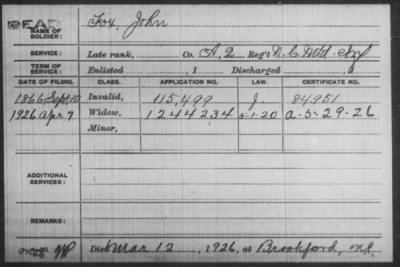 DEAD
NAME OF SOLDIER: Fox, John
SERVICE: Late rank, Co. A, 2 Reg't N.C. Mtd. Inf
TERM OF SERVICE: Enlisted , 1 Discharged , 1
DATE OF FILING. CLASS. APPLICATION NO. LAW. CERTIFICATE NO.
1866 Sept. 10 Invalid, 115,499 J 84951
1926 Apr 7 Widow, 1244234 5-1-20 A-5-29-26
Minor,
ADDITIONAL SERVICES:
REMARKS:
Died Mar 12, 1926, at Brookford, N.C.